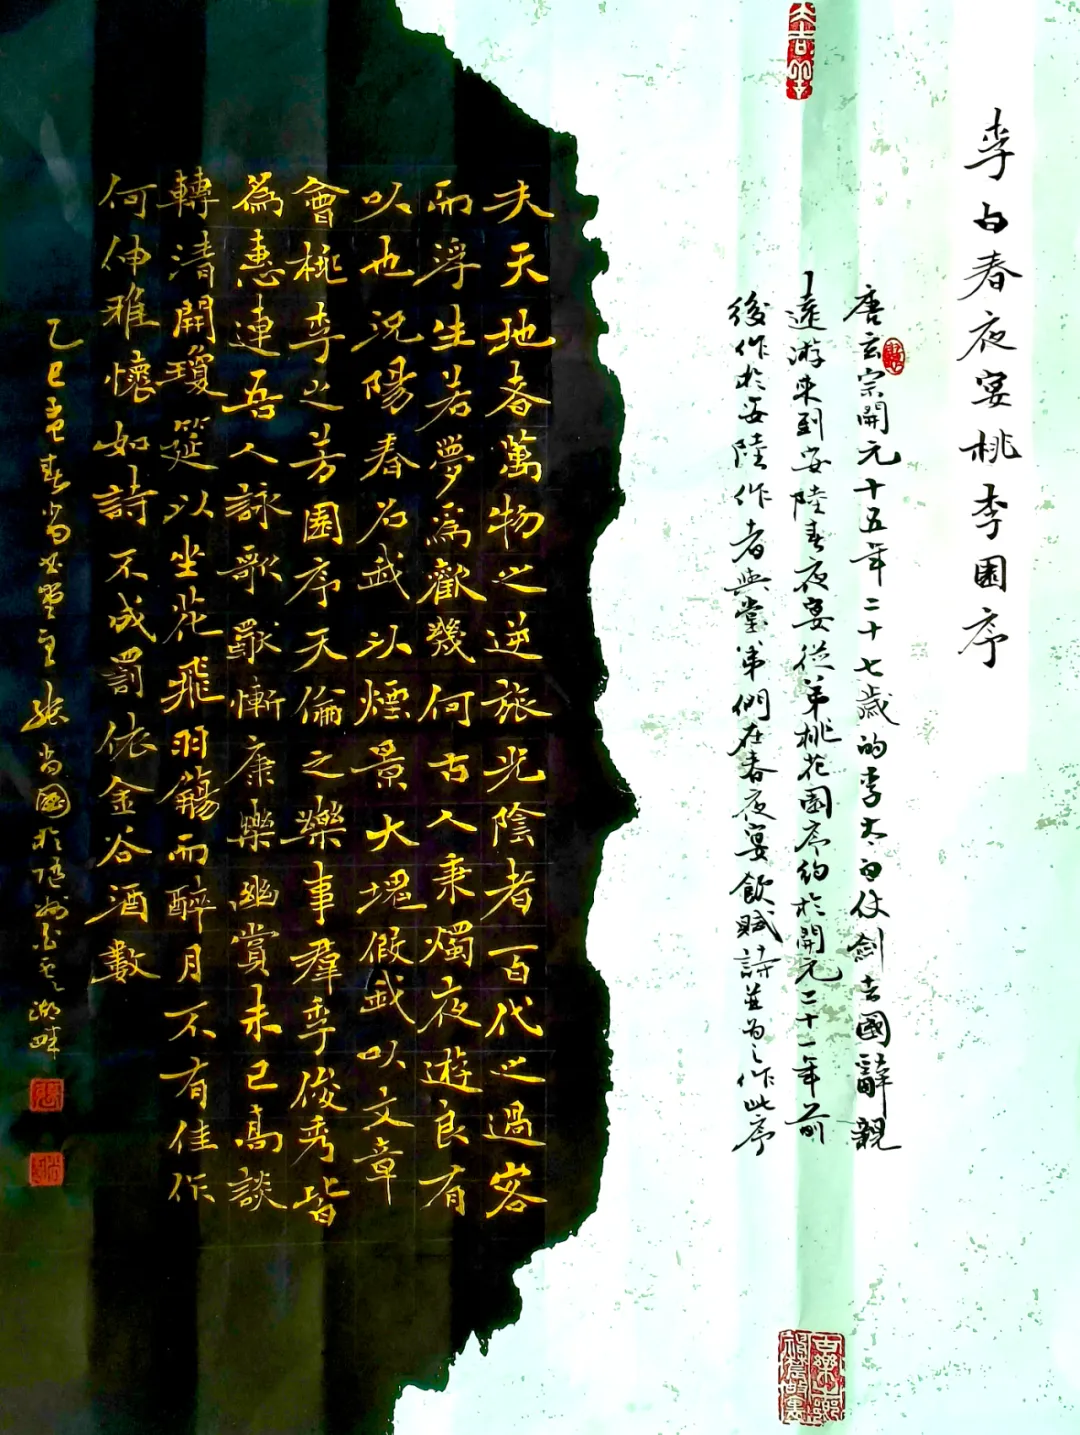 李白春夜宴桃李園序
唐玄宗開元十五年二十七歲的李太白仗劍去國辭親
遠游來到安陸春夜宴從弟桃花園序約於開元二十一年前
後作於安陸作者與堂弟們在春夜宴飲賦詩並為之作此序
夫天地者萬物之逆旅光陰者百代之過客
而浮生若夢為歡幾何古人秉燭夜遊良有
以也況陽春召我以煙景大塊假我以文章
會桃李之芳園序天倫之樂事群季俊秀皆
為惠連吾人詠歌獨慚康樂幽賞未已高談
轉清開瓊筵以坐花飛羽觴而醉月不有佳作
何伸雅懷如詩不成罰依金谷酒數
乙巳孟春尚 堂主張尚國於 湖畔